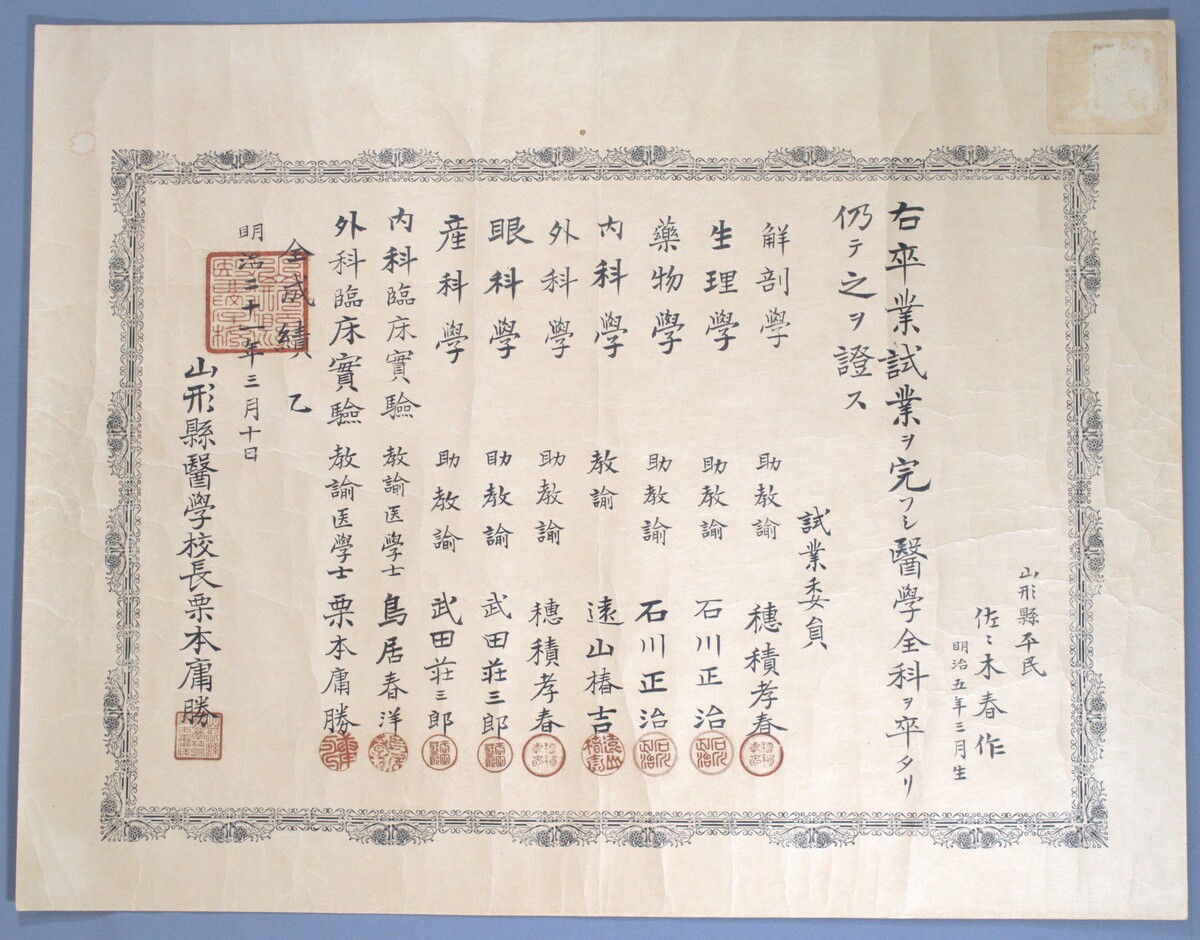 山形縣平民
佐々木春作
明治五年三月生
右卒業試業ヲ完フシ醫学全科ヲ卒タリ
仍テ之ヲ證ス
試業委員
解剖學 助教諭 穗積孝春
生理學 助教諭 石川正治
藥物學 助教諭 石川正治
内科學 教諭 遠山椿吉
外科學 助教諭 穗積孝春
眼科學 助教諭 武田荘三郎
産科學 助教諭 武田荘三郎
内科臨床實驗 教諭医學士 鳥居春洋
外科臨床實驗 教諭医學士 栗本庸勝
全成績 乙
明治二十一年三月十日
山形縣醫学校長栗本庸勝